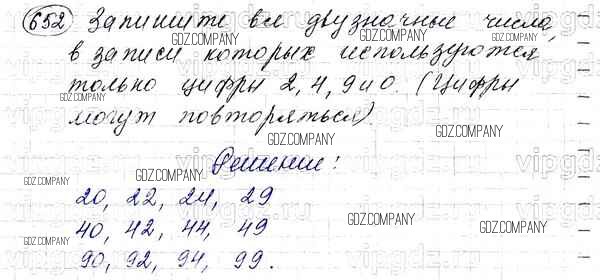 652 Запишите все двузначные числа,
в записи которых используются
только цифры 2, 4, 9 и 0. (Цифры
могут повторяться).
Решение:
20, 22, 24, 29
40, 42, 44, 49
90, 92, 94, 99.
GDZ.COMPANY
GDZ.COMPANY
GDZ.COMPANY
GDZ.COMPANY
GDZ.COMPANY
GDZ.COMPANY
GDZ.COMPANY
GDZ.COMPANY
GDZ.COMPANY
GDZ.COMPANY
GDZ.COMPANY